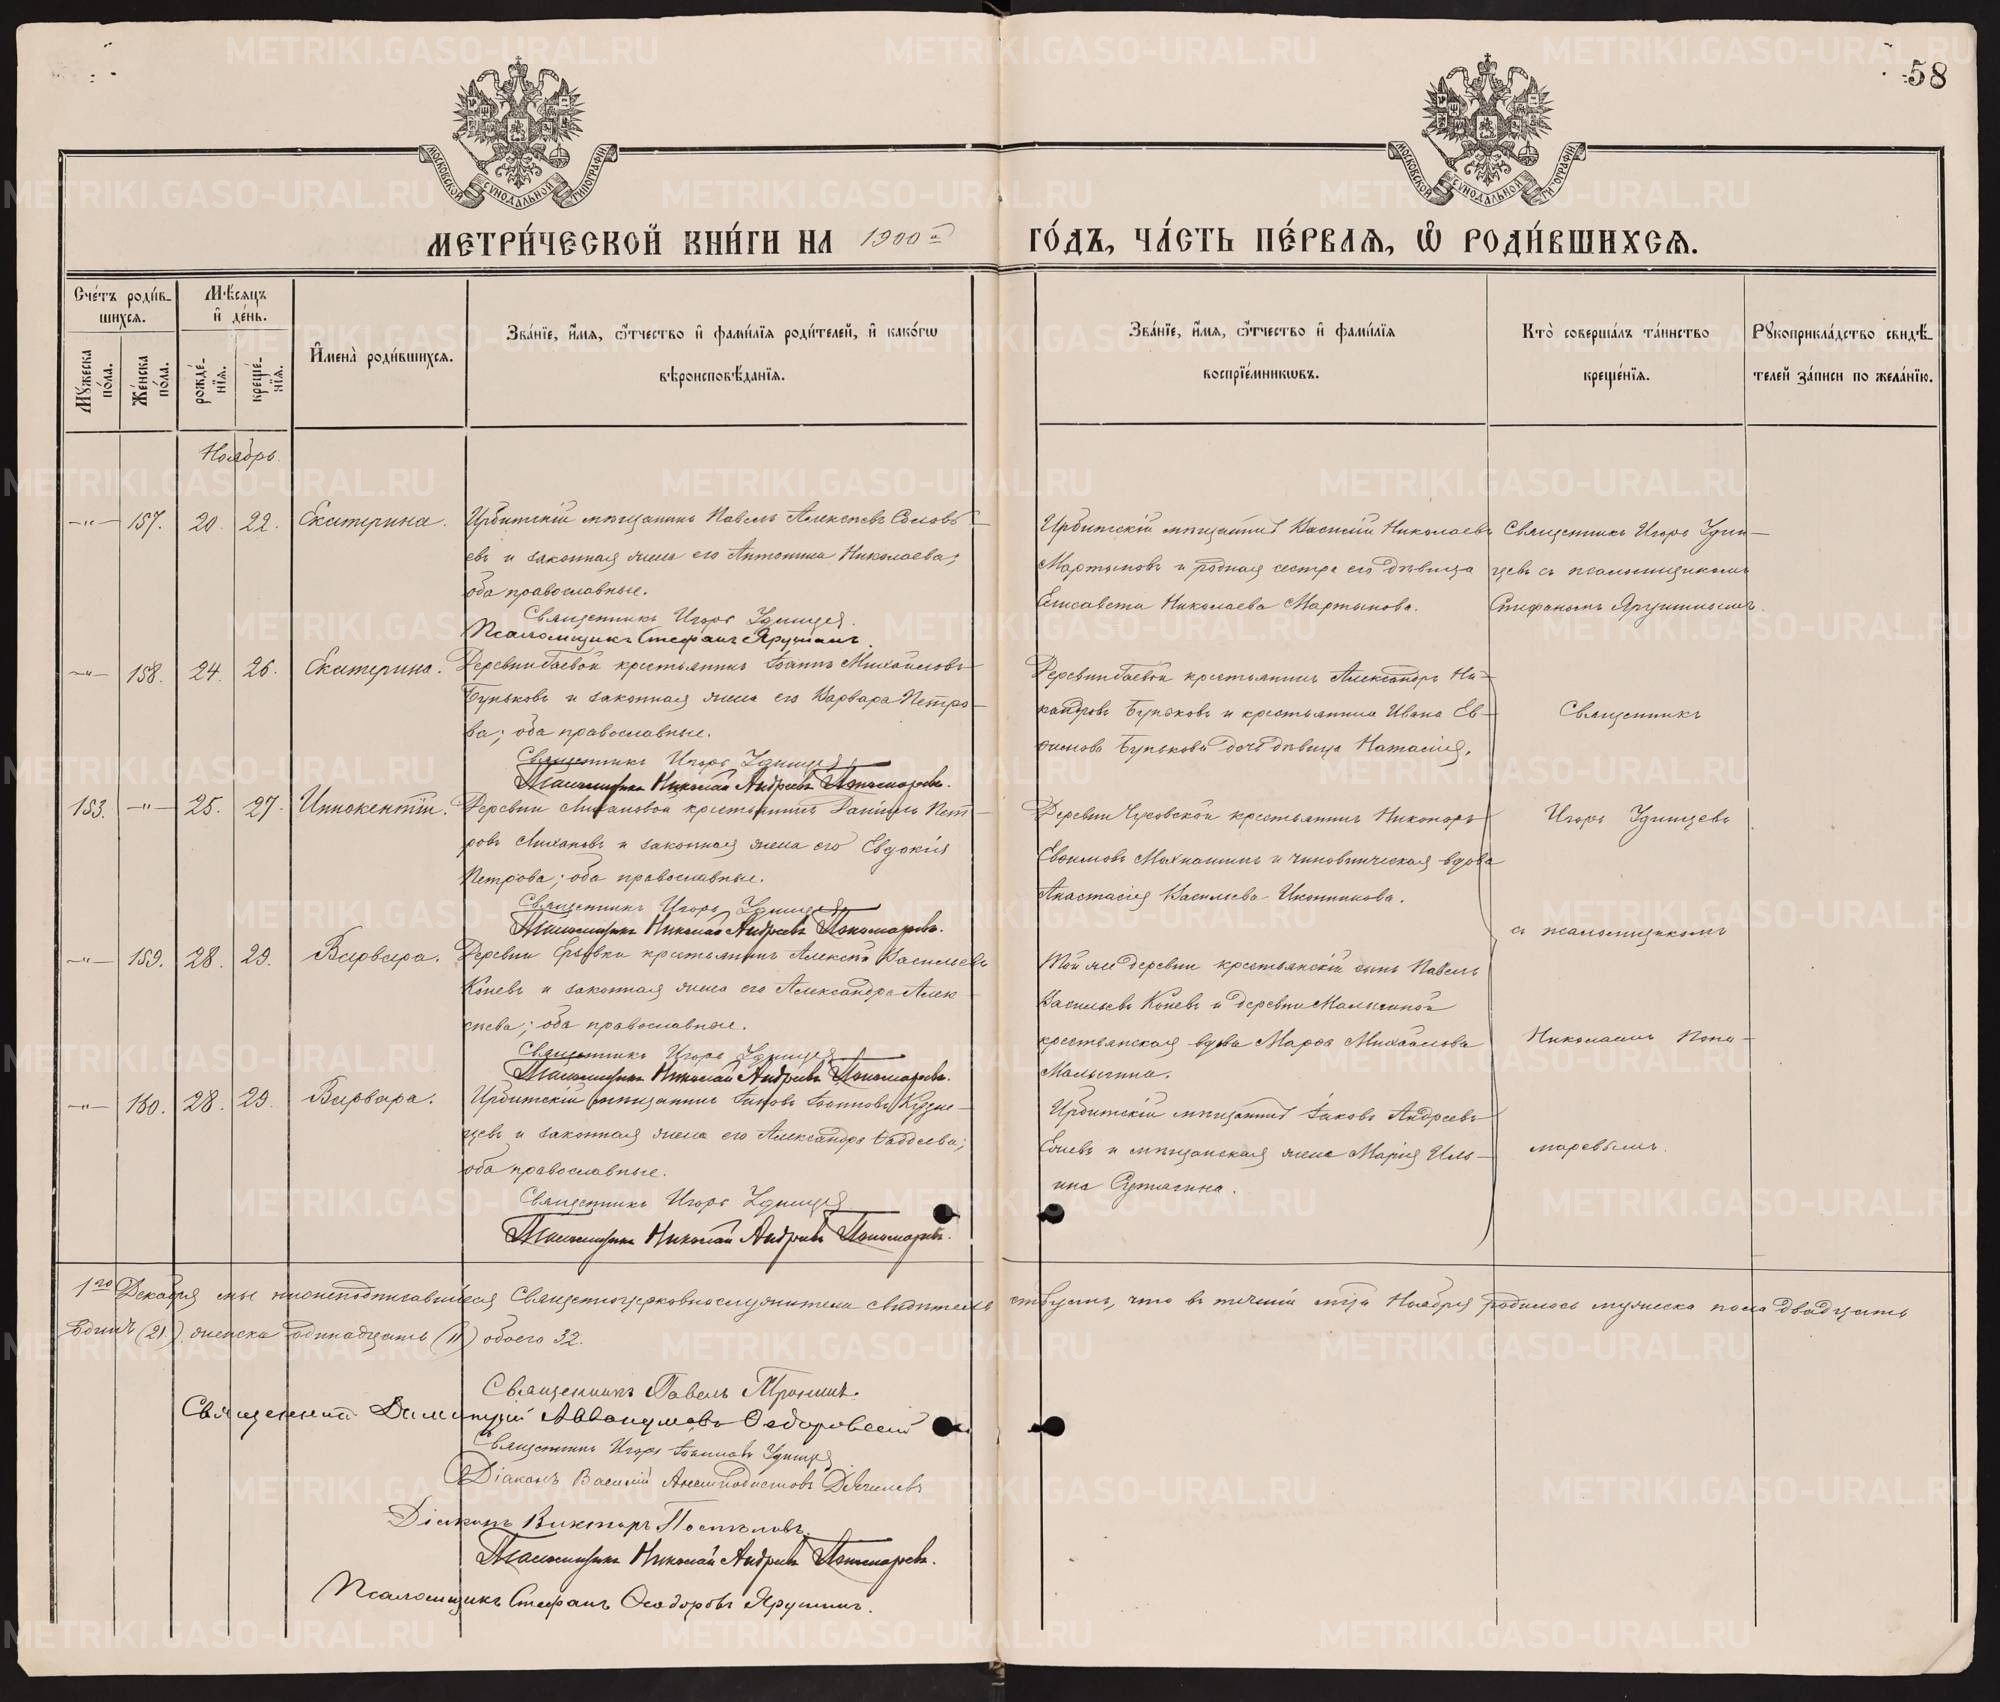 58
МОСКОВСКОЙ СѴНОДАЛЬНОЙ ТИПОГРАФІИ
МОСКОВСКОЙ СѴНОДАЛЬНОЙ ТИПОГРАФІИ
МЕТРИ́ЧЕСКОЙ КНИ́ГИ НА 1900й ГО́ДЪ, ЧА́СТЬ ПЕ́РВАЯ, Ѡ РОДИ́ВШИХСЯ.
Сче́тъ роди́в-
шихся.
Му́жеска по́ла.
Же́нска по́ла.
Мѣ́сяцъ
и҆ де́нь.
рожде́-нїя.
креще́-нїя.
И҆мена̀ роди́вшихся.
Зва́нїе, и҆́мя, ѻ҆́тчество и҆ фами́лїя роди́телей, и҆ како́гѡ
вѣроисповѣ́данїя.
Зва́нїе, и҆́мя, ѻ҆́тчество и҆ фами́лїя
воспрїе́мникѡвъ.
Кто̀ соверша́лъ та́инство
креще́нїя.
Рꙋкоприкла́дство свидѣ́-
телей за́писи по жела́нїю.
Ноябрь.
—„— 157. 20. 22. Екатерина.
Ирбитскій мѣщанинъ Павелъ Алексѣевъ Соловь-
евъ и законная жена его Антонина Николаева;
оба православные.
Священникъ Игорь Удинцев.
Псаломщикъ Стефанъ Ярушинъ.
Ирбитскій мѣщанинъ Василій Николаевъ
Мартыновъ и родная сестра его дѣвица
Елисавета Николаева Мартынова.
Священникъ Игорь Удин-
цевъ съ псаломщикомъ
Стефаномъ Ярушинымъ.
—„— 158. 24. 26. Екатерина.
Деревни Баевой крестьянинъ Іоаннъ Михайловъ
Буньковъ и законная жена его Варвара Петро-
ва; оба православные.
Священникъ Игорь Удинцев
Псаломщикъ Николай Андреевъ Пономаревъ.
Деревни Баевой крестьянинъ Александръ Ни-
кандровъ Буньковъ и крестьянина Ивана Ев-
фимова Бунькова дочь дѣвица Наталія.
Священникъ
153. —„— 25. 27. Иннокентій.
Деревни Лихановой крестьянинъ Даніилъ Пет-
ровъ Лихановъ и законная жена его Евдокія
Петрова; оба православные.
Священникъ Игорь Удинцев
Псаломщикъ Николай Андреевъ Пономаревъ.
Деревни Чусовской крестьянинъ Никоноръ
Евфимовъ и чиновническая вдова
Анастасія Васильева Иконникова.
Игорь Удинцевъ
съ псаломщикомъ
—„— 159. 28. 29. Варвара.
Деревни крестьянинъ Алексѣй Васильевъ
Коневъ и законная жена его Александра Алек-
сѣева; оба православные.
Священникъ Игорь Удинцев
Псаломщикъ Николай Андреевъ Пономаревъ.
Той же деревни крестьянскій сынъ Павелъ
Васильевъ Коневъ и деревни Малыгиной
крестьянская вдова Марфа Михайлова
Малыгина.
Николаемъ Поно-
—„— 160. 28. 29. Варвара.
Ирбитскій мѣщанинъ Іаковъ Іоанновъ Кузне-
цевъ и законная жена его Александра Фаддеева;
оба православные.
Священникъ Игорь Удинцев
Псаломщикъ Николай Андреевъ Пономаревъ.
Ирбитскій мѣщанинъ Іаковъ Андреевъ
и мѣщанская жена Марія Иль-
ина Сутягина.
маревымъ.
1го Декабря мы нижеподписавшіеся Священноцерковнослужители свидѣтельствуемъ, что въ теченіи м-ца Ноября родилось мужеска пола двадцать
одинъ (21) женска одинадцать (11) обоего 32.
Священникъ Павелъ
Священникъ Димитрій Аввакумовъ Ѳедоровскій
Священникъ Игорь Іоанновъ Удинцев
Діаконъ Василій Анемподистовъ Дягилевъ
Діаконъ Викторъ Поспѣловъ.
Псаломщикъ Николай Андреевъ Пономаревъ.
Псаломщикъ Стефанъ Ѳеодоровъ Ярушинъ.
METRIKI.GASO-URAL.RU